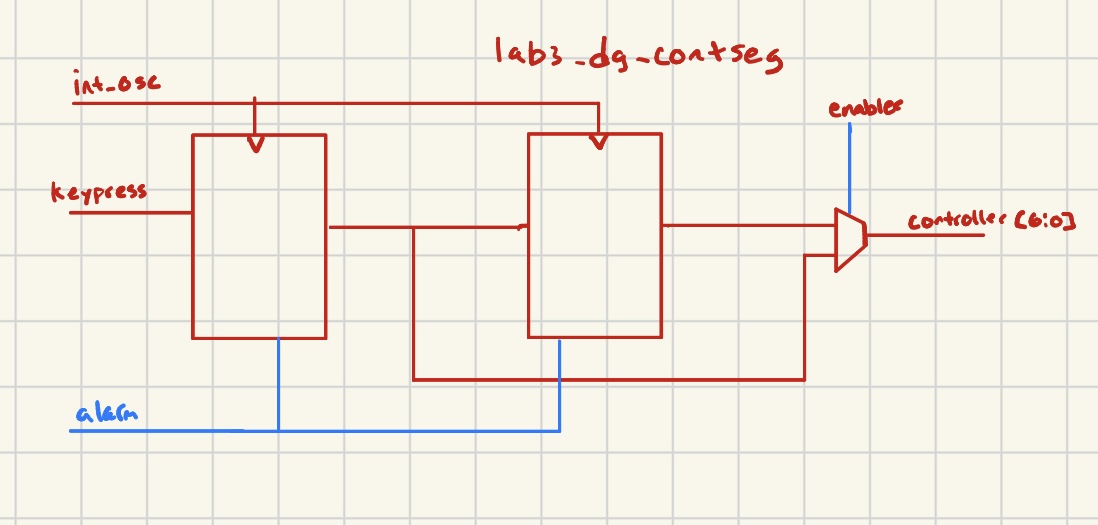 lab3_dg_contseg
int_osc
enables
keypress
controller [6:0]
alarm